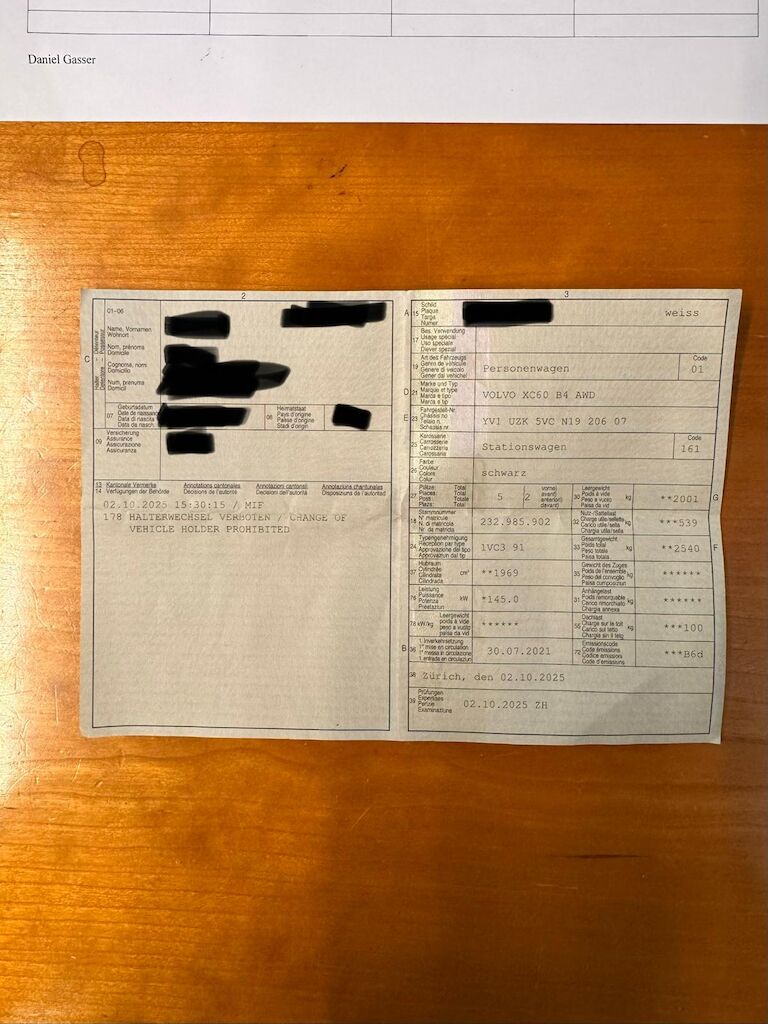 Daniel Gasser
2
01-06
C
Halter - Détenteur
Name, Vornamen
Wohnort
Nom, prénoms
Domicile
Cognome, nomi
Domicilio
Num, prenums
Domicil
07
Geburtsdatum
Date de naissance
Data di nascita
Data da nasch.
08
Heimatstaat
Pays d'origine
Paese d'origine
Stadi d'origin
09
Versicherung
Assurance
Assicurazione
Assicuranza
13
14
Kantonale Vermerke
Verfügungen der Behörde
Annotations cantonales
Décisions de l'autorité
Annotazioni cantonali
Decisioni dell'autorità
Annotaziuns chantunalas
Disposiziuns da l'autoritad
02.10.2025 15:30:15 / MIF
178 HALTERWECHSEL VERBOTEN / CHANGE OF
VEHICLE HOLDER PROHIBITED
3
A
15
Schild
Plaque
Targa
Numer
weiss
17
Bes. Verwendung
Usage spécial
Uso speciale
Diever spezial
19
Art des Fahrzeugs
Genre de véhicule
Genere di veicolo
Gener dal vehichel
Personenwagen
Code
01
D
21
Marke und Typ
Marque et type
Marca e tipo
Marca e tip
VOLVO XC60 B4 AWD
E
23
Fahrgestell-Nr.
Châssis no
Telaio n.
Schassis nr.
YV1 UZK 5VC N19 206 07
25
Karosserie
Carrosserie
Carrozzeria
Carossaria
Stationswagen
Code
161
26
Farbe
Couleur
Colore
Colur
schwarz
27
Plätze Total
Places Total
Posti Totale
Plazs Total
5
2
vorne
avant
anteriori
davant
30
Leergewicht
Poids à vide
Peso a vuoto
Paisa da vid
kg
**2001
G
18
Stammnummer
N° matricule
N. di matricola
Nr. da matricla
232.985.902
32
Nutz-/Sattellast
Charge utile/sellette
Carico utile/sella
Chargia utila/sella
kg
***539
24
Typengenehmigung
Réception par type
Approvazione del tipo
Approvaziun dal tip
1VC3 91
33
Gesamtgewicht
Poids total
Peso totale
Paisa totala
kg
**2540
F
37
Hubraum
Cylindrée
Cilindrata
Cilindrada
cm³
**1969
35
Gewicht des Zuges
Poids de l'ensemble
Peso del convoglio
Paisa cumposiziun
kg
******
76
Leistung
Puissance
Potenza
Prestaziun
kW
*145.0
31
Anhängelast
Poids remorquable
Carico rimorchiato
Chargia annexa
kg
******
78
kW/kg
Leergewicht
poids à vide
peso a vuoto
paisa da vid
******
55
Dachlast
Charge sur le toit
Carico sul tetto
Chargia sin il tetg
kg
***100
B
36
1. Inverkehrsetzung
1re mise en circulation
1a messa in circolazione
1. entrada en circulaziun
30.07.2021
72
Emissionscode
Code émissions
Codice emissioni
Code d'emissiuns
***B6d
38
Zürich, den 02.10.2025
39
Prüfungen
Expertises
Perizie
Examinaziuns
02.10.2025 ZH